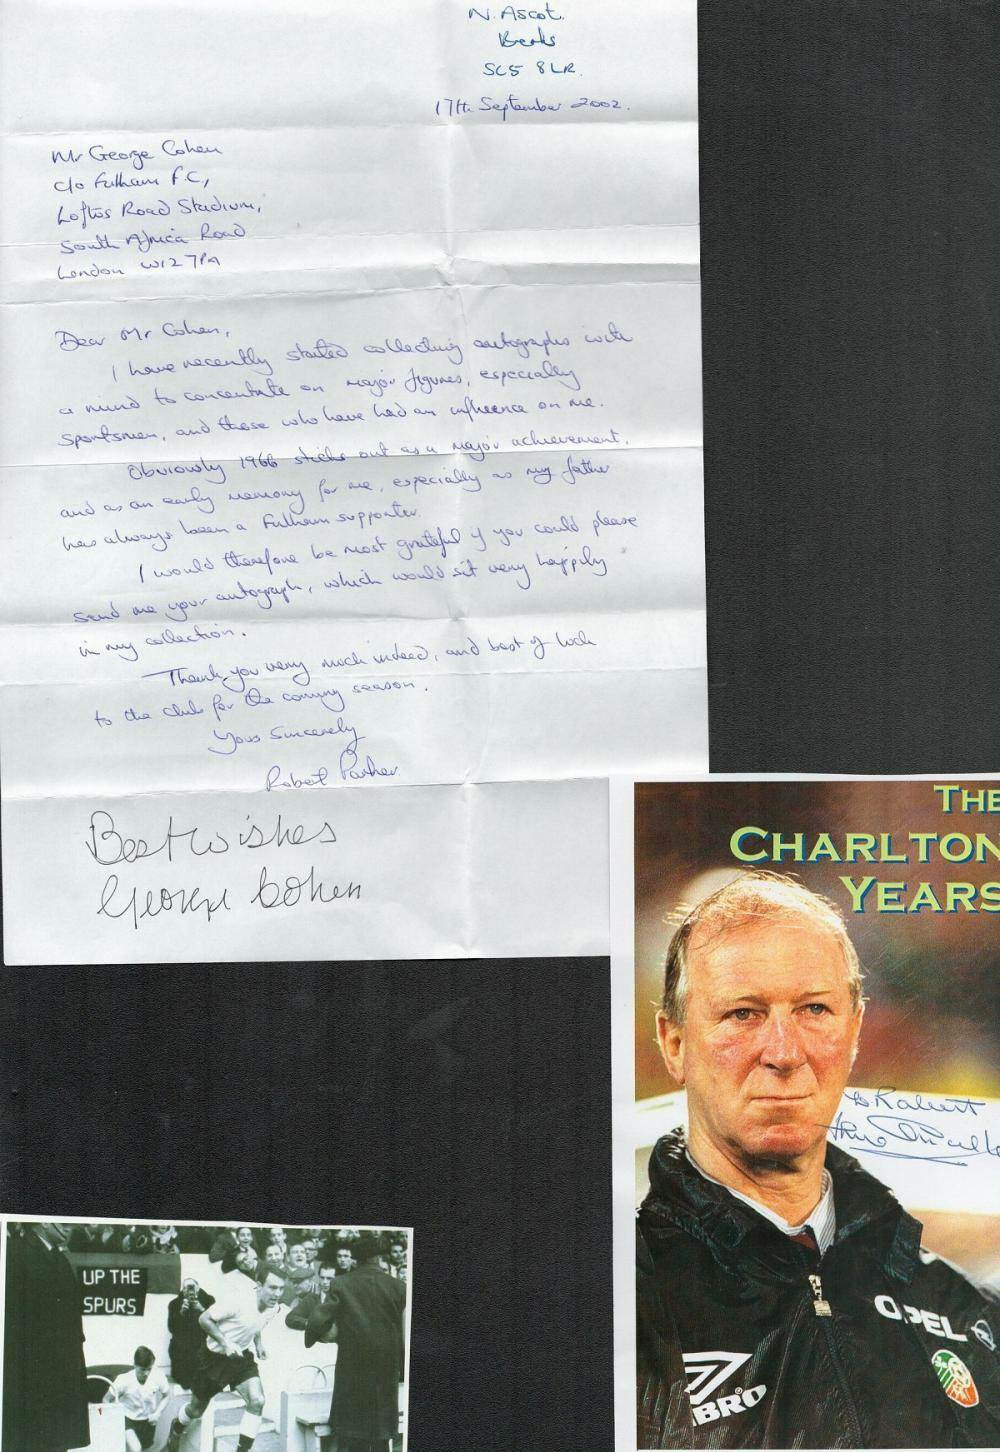 N. Ascot.
Berks
SL5 8LR.
17th September 2002.
Mr George Cohen
c/o Fulham F.C,
Loftus Road Stadium,
South Africa Road
London W12 7PA
Dear Mr Cohen,
I have recently started collecting autographs with
a mind to concentrate on major figures, especially
sportsmen, and those who have had an influence on me.
Obviously 1966 sticks out as a major achievement,
and as an early memory for me, especially as my father
has always been a Fulham supporter.
I would therefore be most grateful if you could please
send me your autograph, which would sit very happily
in my collection.
Thank you very much indeed, and best of luck
to the club for the coming season.
Yours Sincerely
Robert Parker
Best wishes
George Cohen
THE
CHARLTON
YEARS
to Robert
OPEL
UMBRO
UP THE
SPURS